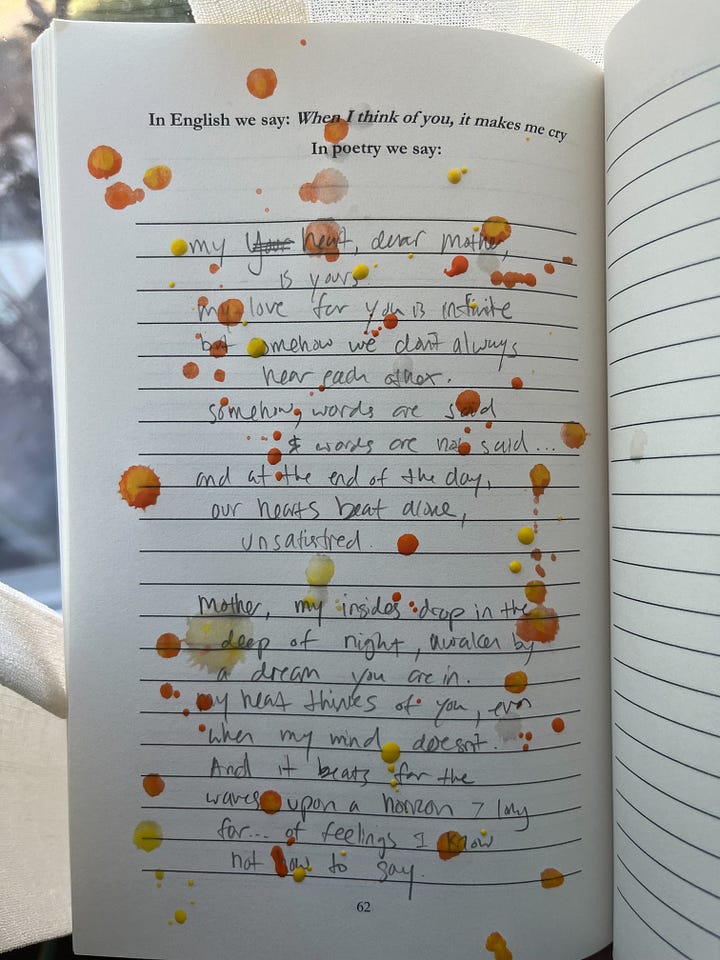 In English we say: When I think of you, it makes me cry
In poetry we say:
my Your heart, dear mother,
is yours
my love for you is infinite
but somehow we don't always
hear each other.
somehow, words are said
& words are not said...
and at the end of the day,
our hearts beat alone,
unsatisfied.
Mother, my insides drop in the
deep of night, awaken by
a dream you are in.
my heart thinks of you, even
when my mind doesn't.
And it beats for the
waves upon a horizon I long
for... of feelings I know
not how to say.
62